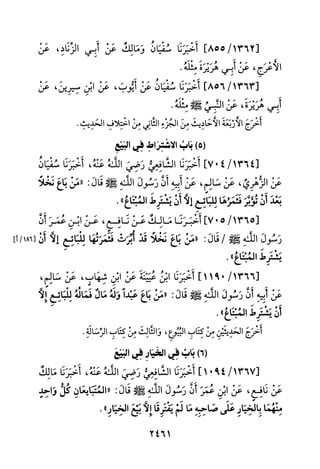 [٨٥٥/١٣٦٢] أَخْبَرَنَا سُفْيَانُ وَمَالِكٌ عَنْ أَبِي الزِّنَادِ، عَنْ
الأَعْرَجِ، عَنْ أَبِي هُرَيْرَةَ مِثْلَهُ.
[٨٥٦/١٣٦٣] أَخْبَرَنَا سُفْيَانُ عَنْ أَيُّوبَ، عَنْ ابْنِ سِيرِينَ، عَنْ
أَبِي هُرَيْرَةَ، عَنِ النَّبِيِّ ﷺ مِثْلَهُ.
أَخْرَجَ الأَرْبَعَةَ الأَحَادِيثَ مِنَ الجُزْءِ الثَّانِي مِنِ اخْتِلافِ الحَدِيثِ.
(٥) بَابُ الاشْتِرَاطِ فِي البَيْعِ
[٧٠٤/١٣٦٤] أَخْبَرَنَا الشَّافِعِيُّ رَضِيَ اللَّهُ عَنْهُ، أَخْبَرَنَا سُفْيَانُ
عَنْ الزُّهْرِيِّ، عَنْ سَالِمٍ، عَنْ أَبِيهِ أَنَّ رَسُولَ اللَّهِ ﷺ قَالَ: «مَنْ بَاعَ نَخْلًا
بَعْدَ أَنْ تُؤَبَّرَ فَثَمَرُهَا لِلْبَائِعِ إِلاَّ أَنْ يَشْتَرِطَ المُبْتَاعُ».
[٧٠٥/١٣٦٥] أَخْبَرَنَا مَالِكٌ عَنْ نَافِعٍ، عَنْ ابْنِ عُمَرَ أَنَّ
رَسُولَ اللَّهِ ﷺ / قَالَ: «مَنْ بَاعَ نَخْلًا قَدْ أُبِّرَتْ فَثَمَرَتُهَا لِلْبَائِعِ إِلاَّ أَنْ [١٨٦/أ]
يَشْتَرِطَ المُبْتَاعُ».
[١١٩٠/١٣٦٦] أَخْبَرَنَا ابْنُ عُيَيْنَةَ عَنْ ابْنِ شِهَابٍ، عَنْ سَالِمٍ،
عَنْ أَبِيهِ أَنَّ رَسُولَ اللَّهِ ﷺ قَالَ: «مَنْ بَاعَ عَبْداً وَلَهُ مَالٌ فَمَالُهُ لِلْبَائِعِ إِلاَّ
أَنْ يَشْتَرِطَ المُبْتَاعُ».
أَخْرَجَ الحَدِيثَيْنِ مِنْ كِتَابِ البُيُوعِ، وَالثَّالِثَ مِنْ كِتَابِ الرِّسَالَةِ.
(٦) بَابٌ فِي الخَيَارِ فِي البَيْعِ
[١٠٩٤/١٣٦٧] أَخْبَرَنَا الشَّافِعِيُّ رَضِيَ اللَّهُ عَنْهُ، أَخْبَرَنَا مَالِكٌ
عَنْ نَافِعٍ، عَنْ ابْنِ عُمَرَ أَنَّ رَسُولَ اللَّهِ ﷺ قَالَ: «المُتَبَايِعَانِ كُلُّ وَاحِدٍ
مِنْهُمَا بِالْخِيَارِ عَلَى صَاحِبِهِ مَا لَمْ يَفْتَرِقَا إِلاَّ بَيْعَ الخِيَارِ».
٢٤٦١